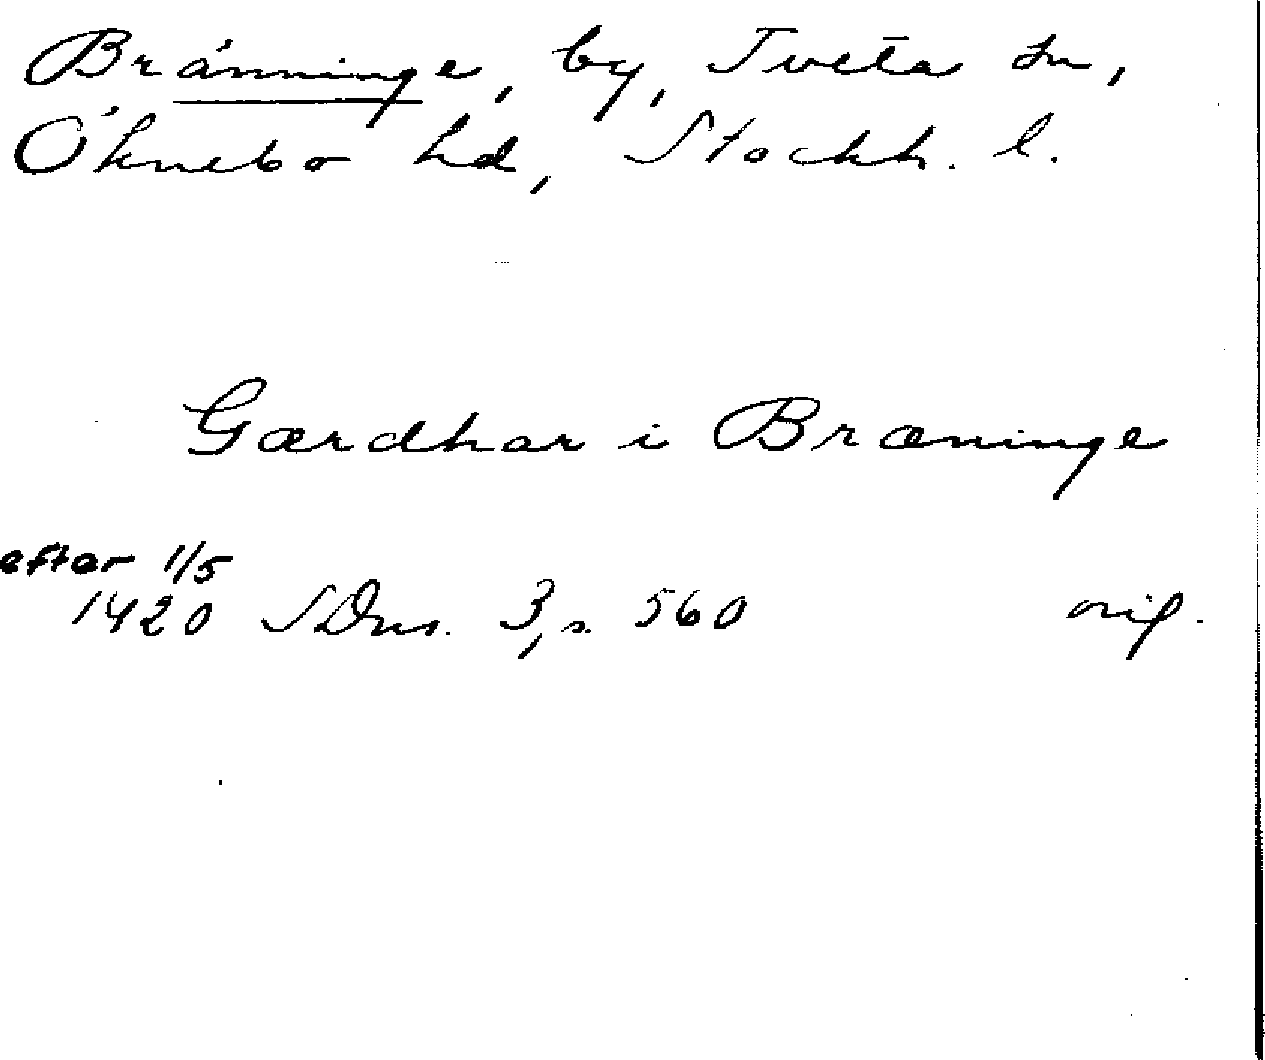 Bränninge, by, Tveta sn,
Öknebo hd, Stockh. l.
Gærdhar i Bræninge
efter 1/5
1420 SDns. 3, s. 560 orig.